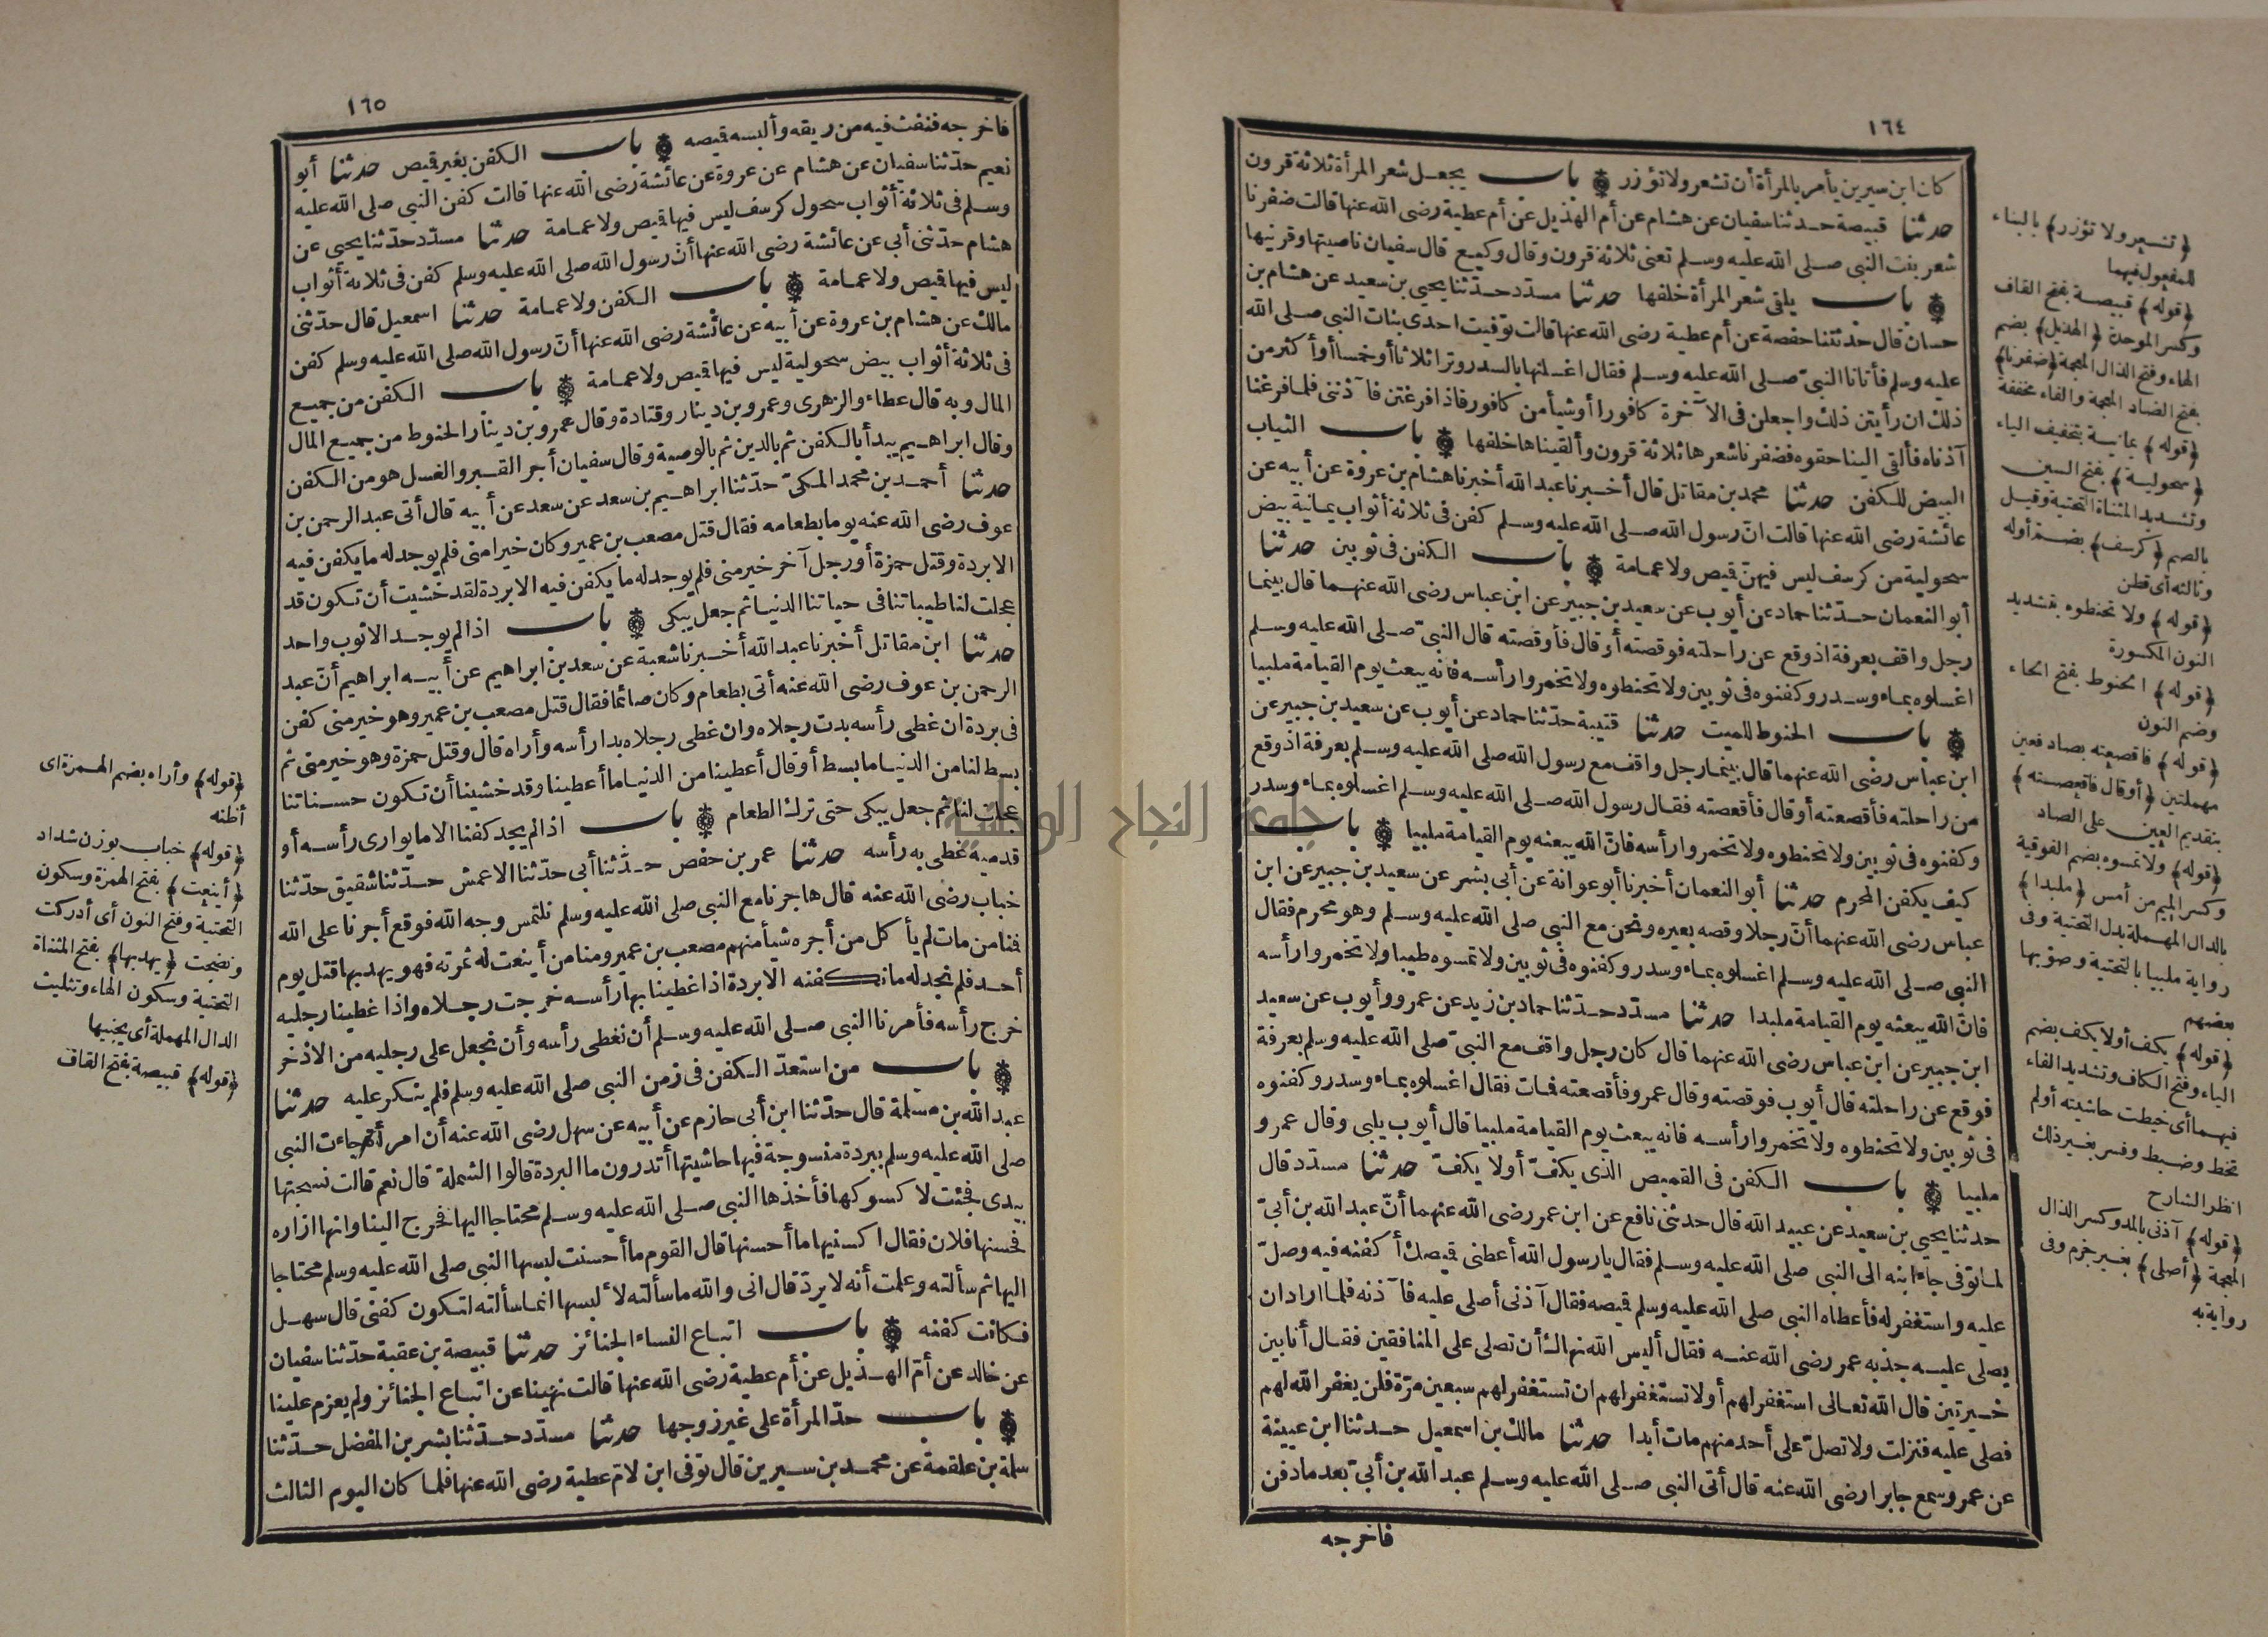 ١٦٤
كان ابن سيرين يأمر بالمرأة أن تشعر ولا تؤزر باب يجعل شعر المرأة ثلاثة قرون
حدثنا قبيصة حدثنا سفيان عن هشام عن أم الهذيل عن أم عطية رضى الله عنها قالت ضفرنا
شعر بنت النبى صلى الله عليه وسلم تعنى ثلاثة قرون وقال وكيع قال سفيان ناصيتها وقرنيها
باب يلقى شعر المرأة خلفها حدثنا مسدد حدثنا يحيى بن سعيد عن هشام بن
حسان قال حدثتنا حفصة عن أم عطية رضى الله عنها قالت توفيت احدى بنات النبى صلى الله
عليه وسلم فأتانا النبى صلى الله عليه وسلم فقال اغسلنها بالسدر وترا ثلاثا أو خمسا أو أكثر من
ذلك ان رأيتن ذلك واجعلن فى الآخرة كافورا أو شيأ من كافور فاذا فرغتن فآذننى فلما فرغنا
آذناه فألقى الينا حقوه فضفرنا شعرها ثلاثة قرون وألقيناها خلفها باب الثياب
البيض للكفن حدثنا محمد بن مقاتل قال أخبرنا عبد الله أخبرنا هشام بن عروة عن أبيه عن
عائشة رضى الله عنها قالت ان رسول الله صلى الله عليه وسلم كفن فى ثلاثة أثواب يمانية بيض
سحولية من كرسف ليس فيهن قيص ولا عمامة باب الكفن فى ثوبين حدثنا
أبو النعمان حدثنا حماد عن أيوب عن سعيد بن جبير عن ابن عباس رضى الله عنهما قال بينما
رجل واقف بعرفة اذ وقع عن راحلته فوقصته أو قال فأوقصته قال النبى صلى الله عليه وسلم
اغسلوه بماء وسدر وكفنوه فى ثوبين ولا تحنطوه ولا تخمروا رأسه فانه يبعث يوم القيامة ملبيا
باب الحنوط للميت حدثنا قتيبة حدثنا حماد عن أيوب عن سعيد بن جبير عن
ابن عباس رضى الله عنهما قال بينما رجل واقف مع رسول الله صلى الله عليه وسلم بعرفة اذ وقع
من راحلته فأقصعته أو قال فأقعصته فقال رسول الله صلى الله عليه وسلم اغسلوه بماء وسدر
وكفنوه فى ثوبين ولا تحنطوه ولا تخمروا رأسه فان الله يبعثه يوم القيامة ملبيا باب
كيف يكفن المحرم حدثنا أبو النعمان أخبرنا أبو عوانة عن أبى بشر عن سعيد بن جبير عن ابن
عباس رضى الله عنهما أن رجلا وقصه بعيره ونحن مع النبى صلى الله عليه وسلم وهو محرم فقال
النبى صلى الله عليه وسلم اغسلوه بماء وسدر وكفنوه فى ثوبين ولا تمسوه طيبا ولا تخمروا رأسه
فان الله يبعثه يوم القيامة ملبدا حدثنا مسدد حدثنا حماد بن زيد عن عمرو وأيوب عن سعيد
ابن جبير عن ابن عباس رضى الله عنهما قال كان رجل واقف مع النبى صلى الله عليه وسلم بعرفة
فوقع عن راحلته قال أيوب فوقصته وقال عمرو فأقصعته فمات فقال اغسلوه بماء وسدر وكفنوه
فى ثوبين ولا تحنطوه ولا تخمروا رأسه فانه يبعث يوم القيامة ملبيا قال أيوب يلبى وقال عمرو
ملبيا باب الكفن فى القميص الذى يكف أو لا يكف حدثنا مسدد قال
حدثنا يحيى بن سعيد عن عبيد الله قال حدثنى نافع عن ابن عمر رضى الله عنهما أن عبد الله بن أبى
لما توفى جاء ابنه الى النبى صلى الله عليه وسلم فقال يا رسول الله أعطنى قيصك أكفنه فيه وصل
عليه واستغفر له فأعطاه النبى صلى الله عليه وسلم قيصه فقال آذنى أصلى عليه فآذنه فلما اراد ان
يصلى عليه جذبه عمر رضى الله عنه فقال أليس الله نهاك أن تصلى على المنافقين فقال أنا بين
خيرتين قال الله تعالى استغفر لهم أو لا تستغفر لهم ان تستغفر لهم سبعين مرة فلن يغفر الله لهم
فصلى عليه فنزلت ولا تصل على أحد منهم مات أبدا حدثنا مالك بن اسمعيل حدثنا ابن عيينة
عن عمرو سمع جابرا رضى الله عنه قال أتى النبى صلى الله عليه وسلم عبد الله بن أبى بعد ما دفن
فاخرجه
﴿تشعر ولا تؤزر﴾ بالبناء
للمفعول فيهما
﴿قوله﴾ قبيصة بفتح القاف
وكسر الموحدة ﴿الهذيل﴾ بضم
الهاء وفتح الذال المعجمة ﴿ضفرنا﴾
بفتح الضاد المعجمة والفاء مخففة
﴿قوله﴾ يمانية بتخفيف الياء
﴿سحولية﴾ بفتح السين
وتشديد المثناة التحتية وقيل
بالضم ﴿كرسف﴾ بضم أوله
وثالثه أى قطن
﴿قوله﴾ ولا تحنطوه بتشديد
النون المكسورة
﴿قوله﴾ الحنوط بفتح الحاء
وضم النون
﴿قوله﴾ فاقصعته بصاد فعين
مهملتين ﴿أو قال فاقعصته﴾
بتقديم العين على الصاد
﴿قوله﴾ ولا تمسوه بضم الفوقية
وكسر الميم من أمس ﴿ملبدا﴾
بالدال المهملة بدل التحتية وفى
رواية ملبيا بالتحتية وصوبها
بعضهم
﴿قوله﴾ يكف أو لا يكف بضم
الياء وفتح الكاف وتشديد الفاء
فيهما أى خيطت حاشيته أو لم
تخط وضبط وفسر بغير ذلك
انظر الشارح
﴿قوله﴾ آذنى بالمد وكسر الذال
المعجمة ﴿أصلى﴾ بغير جزم وفى
رواية به
١٦٥
فاخرجه فنفث فيه من ريقه وألبسه قيصه باب الكفن بغير قيص حدثنا أبو
نعيم حدثنا سفيان عن هشام عن عروة عن عائشة رضى الله عنها قالت كفن النبى صلى الله عليه
وسلم فى ثلاثة أثواب سحول كرسف ليس فيها قيص ولا عمامة حدثنا مسدد حدثنا يحيى عن
هشام حدثنى أبى عن عائشة رضى الله عنها أن رسول الله صلى الله عليه وسلم كفن فى ثلاثة أثواب
ليس فيها قيص ولا عمامة باب الكفن ولا عمامة حدثنا اسمعيل قال حدثنى
مالك عن هشام بن عروة عن أبيه عن عائشة رضى الله عنها أن رسول الله صلى الله عليه وسلم كفن
فى ثلاثة أثواب بيض سحولية ليس فيها قيص ولا عمامة باب الكفن من جميع
المال وبه قال عطاء والزهرى وعمرو بن دينار وقتادة وقال عمرو بن دينار الحنوط من جميع المال
وقال ابراهيم يبدأ بالكفن ثم بالدين ثم بالوصية وقال سفيان أجر القبر والغسل هو من الكفن
حدثنا أحمد بن محمد المكى حدثنا ابراهيم بن سعد عن سعد عن أبيه قال أتى عبد الرحمن بن
عوف رضى الله عنه يوما بطعامه فقال قتل مصعب بن عمير وكان خيرا منى فلم يوجد له ما يكفن فيه
الا بردة وقتل حمزة أو رجل آخر خير منى فلم يوجد له ما يكفن فيه الا بردة لقد خشيت أن تكون قد
عجلت لنا طيباتنا فى حياتنا الدنيا ثم جعل يبكى باب اذا لم يوجد الا ثوب واحد
حدثنا ابن مقاتل أخبرنا عبد الله أخبرنا شعبة عن سعد بن ابراهيم عن أبيه ابراهيم أن عبد
الرحمن بن عوف رضى الله عنه أتى بطعام وكان صائما فقال قتل مصعب بن عمير وهو خير منى كفن
فى بردة ان غطى رأسه بدت رجلاه وان غطى رجلاه بدا رأسه وأراه قال وقتل حمزة وهو خير منى ثم
بسط لنا من الدنيا ما بسط أو قال أعطينا من الدنيا ما أعطينا وقد خشينا أن تكون حسناتنا
عجلت لنا ثم جعل يبكى حتى ترك الطعام باب اذا لم يجد كفنا الا ما يوارى رأسه أو
قدميه غطى به رأسه حدثنا عمر بن حفص حدثنا أبى حدثنا الاعمش حدثنا شقيق حدثنا
خباب رضى الله عنه قال هاجرنا مع النبى صلى الله عليه وسلم نلتمس وجه الله فوقع أجرنا على الله
فمنا من مات لم يأكل من أجره شيأ منهم مصعب بن عمير ومنا من أينعت له ثمرته فهو يهدبها قتل يوم
أحد فلم نجد له ما نكفنه الا بردة اذا غطينا بها رأسه خرجت رجلاه واذا غطينا رجليه
خرج رأسه فأمرنا النبى صلى الله عليه وسلم أن نغطى رأسه وأن نجعل على رجليه من الاذخر
باب من استعد الكفن فى زمن النبى صلى الله عليه وسلم فلم ينكر عليه حدثنا
عبد الله بن مسلمة قال حدثنا ابن أبى حازم عن أبيه عن سهل رضى الله عنه أن امرأة جاءت النبى
صلى الله عليه وسلم ببردة منسوجة فيها حاشيتها أتدرون ما البردة قالوا الشملة قال نعم قالت نسجتها
بيدى فجئت لاكسوكها فأخذها النبى صلى الله عليه وسلم محتاجا اليها فخرج الينا وانها ازاره
فحسنها فلان فقال اكسنيها ما أحسنها قال القوم ما أحسنت لبسها النبى صلى الله عليه وسلم محتاجا
اليها ثم سألته وعلمت أنه لا يرد قال انى والله ما سألته لألبسها انما سألته لتكون كفنى قال سهل
فكانت كفنه باب اتباع النساء الجنائز حدثنا قبيصة بن عقبة حدثنا سفيان
عن خالد عن أم الهذيل عن أم عطية رضى الله عنها قالت نهينا عن اتباع الجنائز ولم يعزم علينا
باب حد المرأة على غير زوجها حدثنا مسدد حدثنا بشر بن المفضل حدثنا
سلمة بن علقمة عن محمد بن سيرين قال توفى ابن لام عطية رضى الله عنها فلما كان اليوم الثالث
﴿قوله﴾ وأراه بضم الهمزة أى
أظنه
﴿قوله﴾ خباب بوزن شداد
﴿أينعت﴾ بفتح الهمزة وسكون
التحتية وفتح النون أى أدركت
ونضجت ﴿يهدبها﴾ بفتح المثناة
التحتية وسكون الهاء وتثليث
الدال المهملة أى يجنيها
﴿قوله﴾ قبيصة بفتح القاف
جامعة النجاح الوطنية